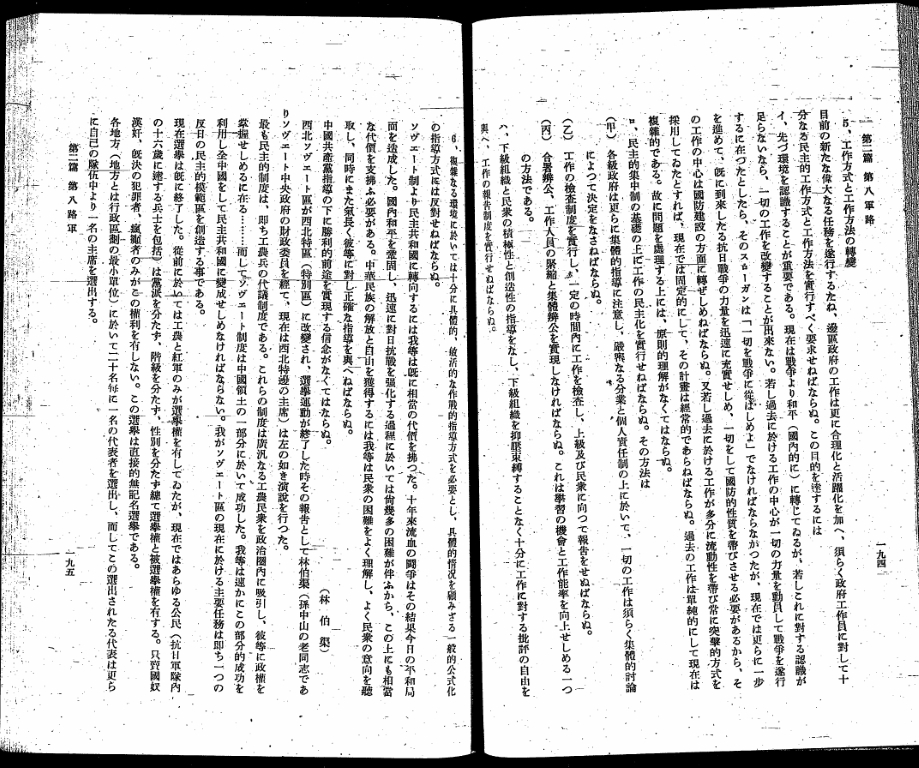 第二篇　第八路軍
一九四
5、工作方式と工作方法の轉變
目前の新たな偉大なる任務を遂行するため、邊區政府の工作は更に合理化と活躍化を加へ、須らく政府工作員に對して十
分なる民主的工作方式と工作方法を實行すべく要求せねばならぬ。この目的を達するには
イ、先づ環境を認識することが重要である。現在は戰爭より和平（國內的に）に轉じてゐるが、若しこれに對する認識が
足らないなら、一切の工作を改變することが出來ない。若し過去に於ける工作の中心が一切の力量を動員して戰爭を遂行
するに在つたとしたら、そのスローガンは「一切を戰爭に從はしめよ」でなければならなかつたが、現在では更らに一步
を進めて、旣に到來したる抗日戰爭の力量を迅速に充實せしめ、一切をして國防的性質を帶びさせる必要があるから、そ
の工作の中心は國防建設の方面に轉ぜしめねばならぬ。又若し過去に於ける工作が多分に流動性を帶び常に突擊的方式を
採用してゐたとすれば、現在では固定的にして、その計畫は經常的であらねばならぬ。過去の工作は單純的にして現在は
複雜的である。故に問題を處理する上には、原則的理解がなくてはならぬ。
ロ、民主的集中制の基礎の上に工作の民主化を實行せねばならぬ。その方法は
(甲)　各級政府は更らに集體的指導に注意し、嚴密なる分業と個人責任制の上に於いて、一切の工作は須らく集體的討論
によつて決定をなさねばならぬ。
(乙)　工作の檢査制度を實行し、一定の時間內に工作を檢査し、上級及び民衆に向つて報告をせねばならぬ。
(丙)　合署辨公、工作人員の緊縮と集體辨公を實現しなければならぬ。これは學習の機會と工作能率を向上せしめる一つ
の方法である。
ハ、下級組織と民衆の積極性と創造性の指導をなし、下級組織を抑壓束縛することなく十分に工作に對する批評の自由を
與へ、工作の報告制度を實行せねばならぬ。
6、複雜なる環境に於いては十分に具體的、敏活的な作戰的指導方式を必要とし、具體的情況を顧みざる一般的公式化
の指導方式には反對せねばならぬ。
ソヴェート制より民主共和國に轉向するには我等は旣に相當の代價を拂つた。十年來流血の鬪爭はその結果今日の平和局
面を造成した。國內和平を鞏固し、迅速に對日抗戰を强化する過程に於いては尙幾多の困難が伴ふから、この上にも相當
な代價を支拂ふ必要がある。中華民族の解放と自由を獲得するには我等は民衆の困難をよく理解し、よく民衆の意向を聽
取し、同時にまた氣長く彼等に對し正確な指導を與へねばならぬ。
中國共產黨指導の下に勝利的前途を實現する信念がなくてはならぬ。
（林　伯　渠）
西北ソヴェート區が西北特區（特別區）に改變され、選擧運動が終了した時その報告として林伯渠（孫中山の老同志であ
りソヴェート中央政府の財政委員を經て、現在は西北特邊の主席）は左の如き演說を行つた。
最も民主的制度は、卽ち工農兵の代議制度である。これらの制度は廣汎なる工農民衆を政治圈內に吸引し、彼等に政權を
掌握せしめるに在る……而してソヴェート制度は中國領土の一部分に於いて成功した。我等は速かにこの部分的成功を
利用し全中國をして民主共和國に變成せしめなければならない。我がソヴェート區の現在に於ける主要任務は卽ち一つの
反日の民主的模範區を創造する事である。
現在選擧は旣に終了した。從前に於いては工農と紅軍のみが選擧權を有してゐたが、現在ではあらゆる公民（抗日軍隊內
の十六歲に達する兵士を包括）は黨派を分たず、階級を分たず、性別を分たず總て選擧權と被選擧權を有する。只賣國奴
漢奸、旣決の犯罪者、瘋癲者のみがこの權利を有しない。この選擧は直接的無記名選擧である。
各地方（地方とは行政區劃の最小單位）に於いて二十名每に一名の代表者を選出し、而してこの選出されたる代表は更ら
に自己の隊伍中より一名の主席を選出する。
第二篇　第八路軍
一九五